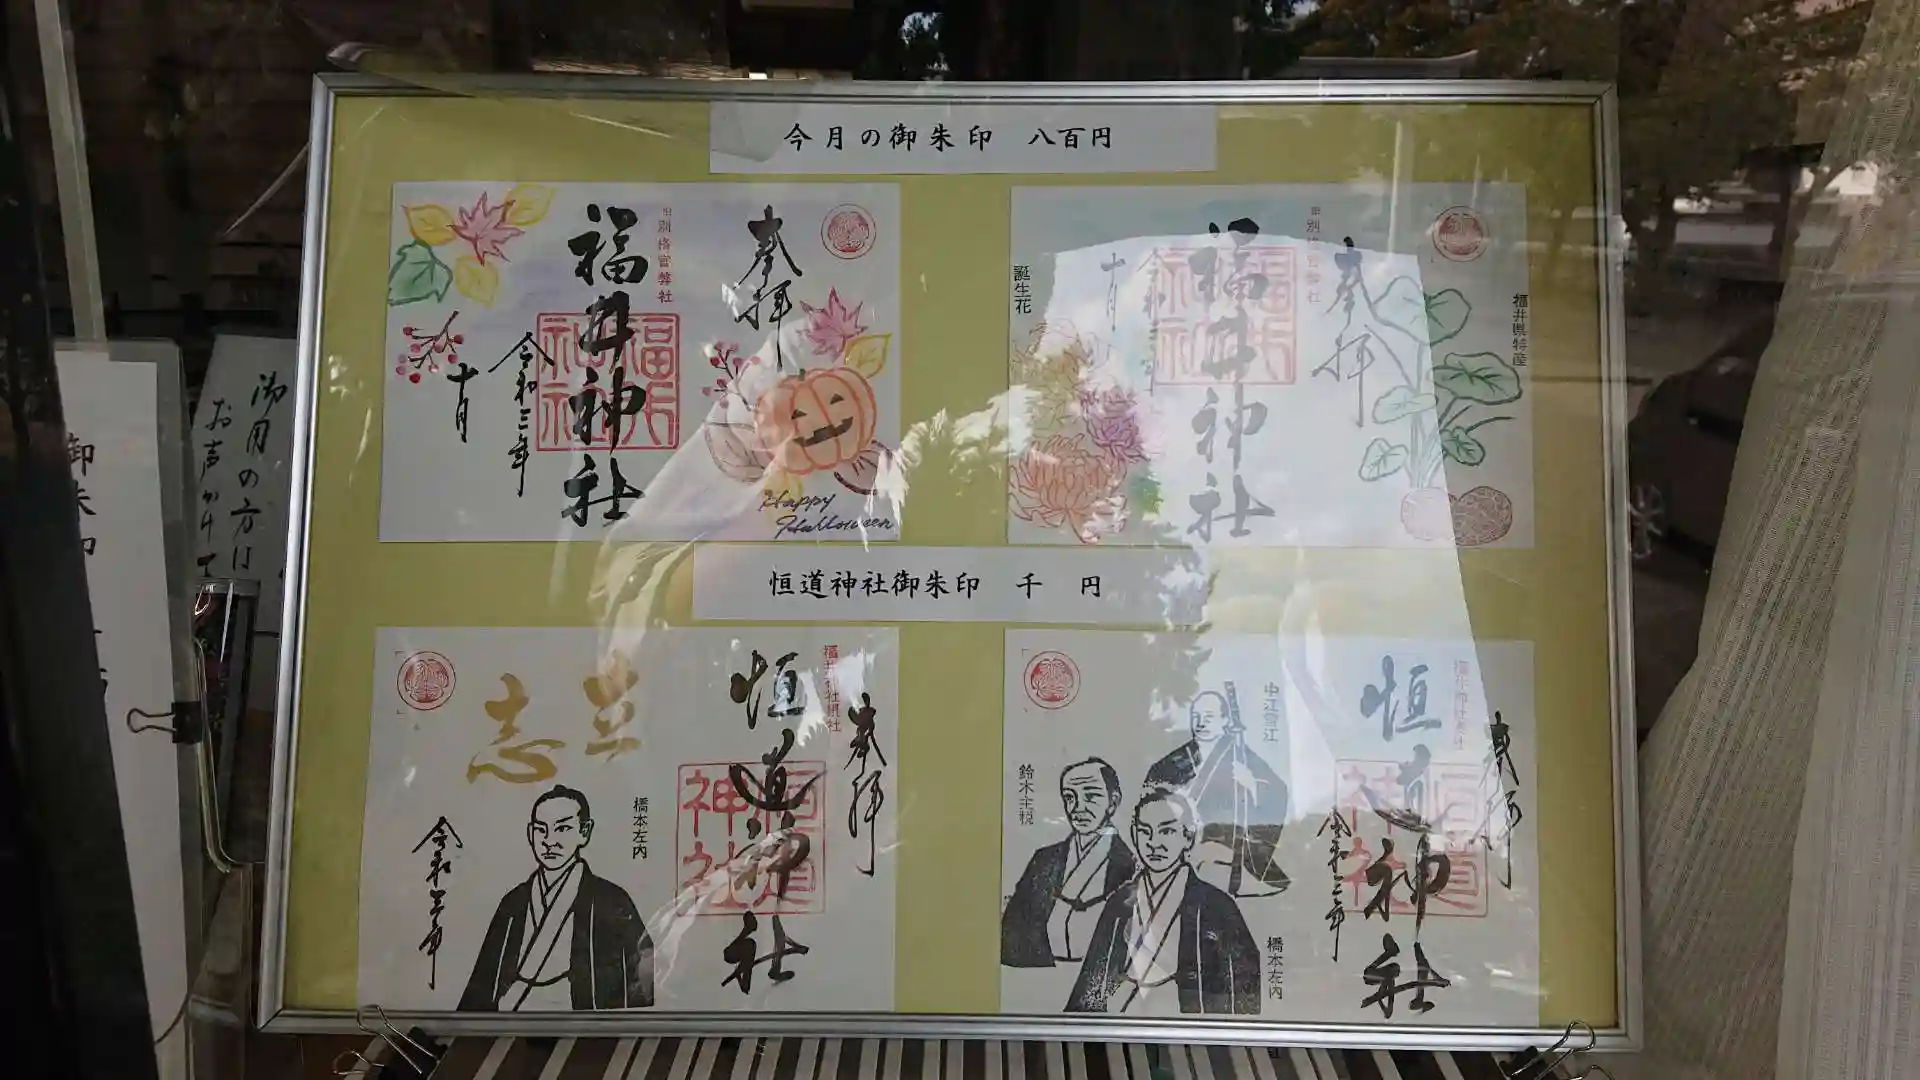 今月の御朱印 八百円
奉拝
旧別格官幣社
福井神社
福井神社
令和三年
十月
Happy
Halloween
福井県特産
奉拝
旧別格官幣社
福井神社
福井神社
令和三年
十月
誕生花
恒道神社御朱印 千 円
奉拝
福井神社摂社
恒道神社
恒道神社
立志
橋本左内
令和三年
奉拝
福井神社摂社
恒道神社
恒道神社
令和三年
中江雪江
橋本左内
鈴木主税
御用の方は
お声かけて
御朱印